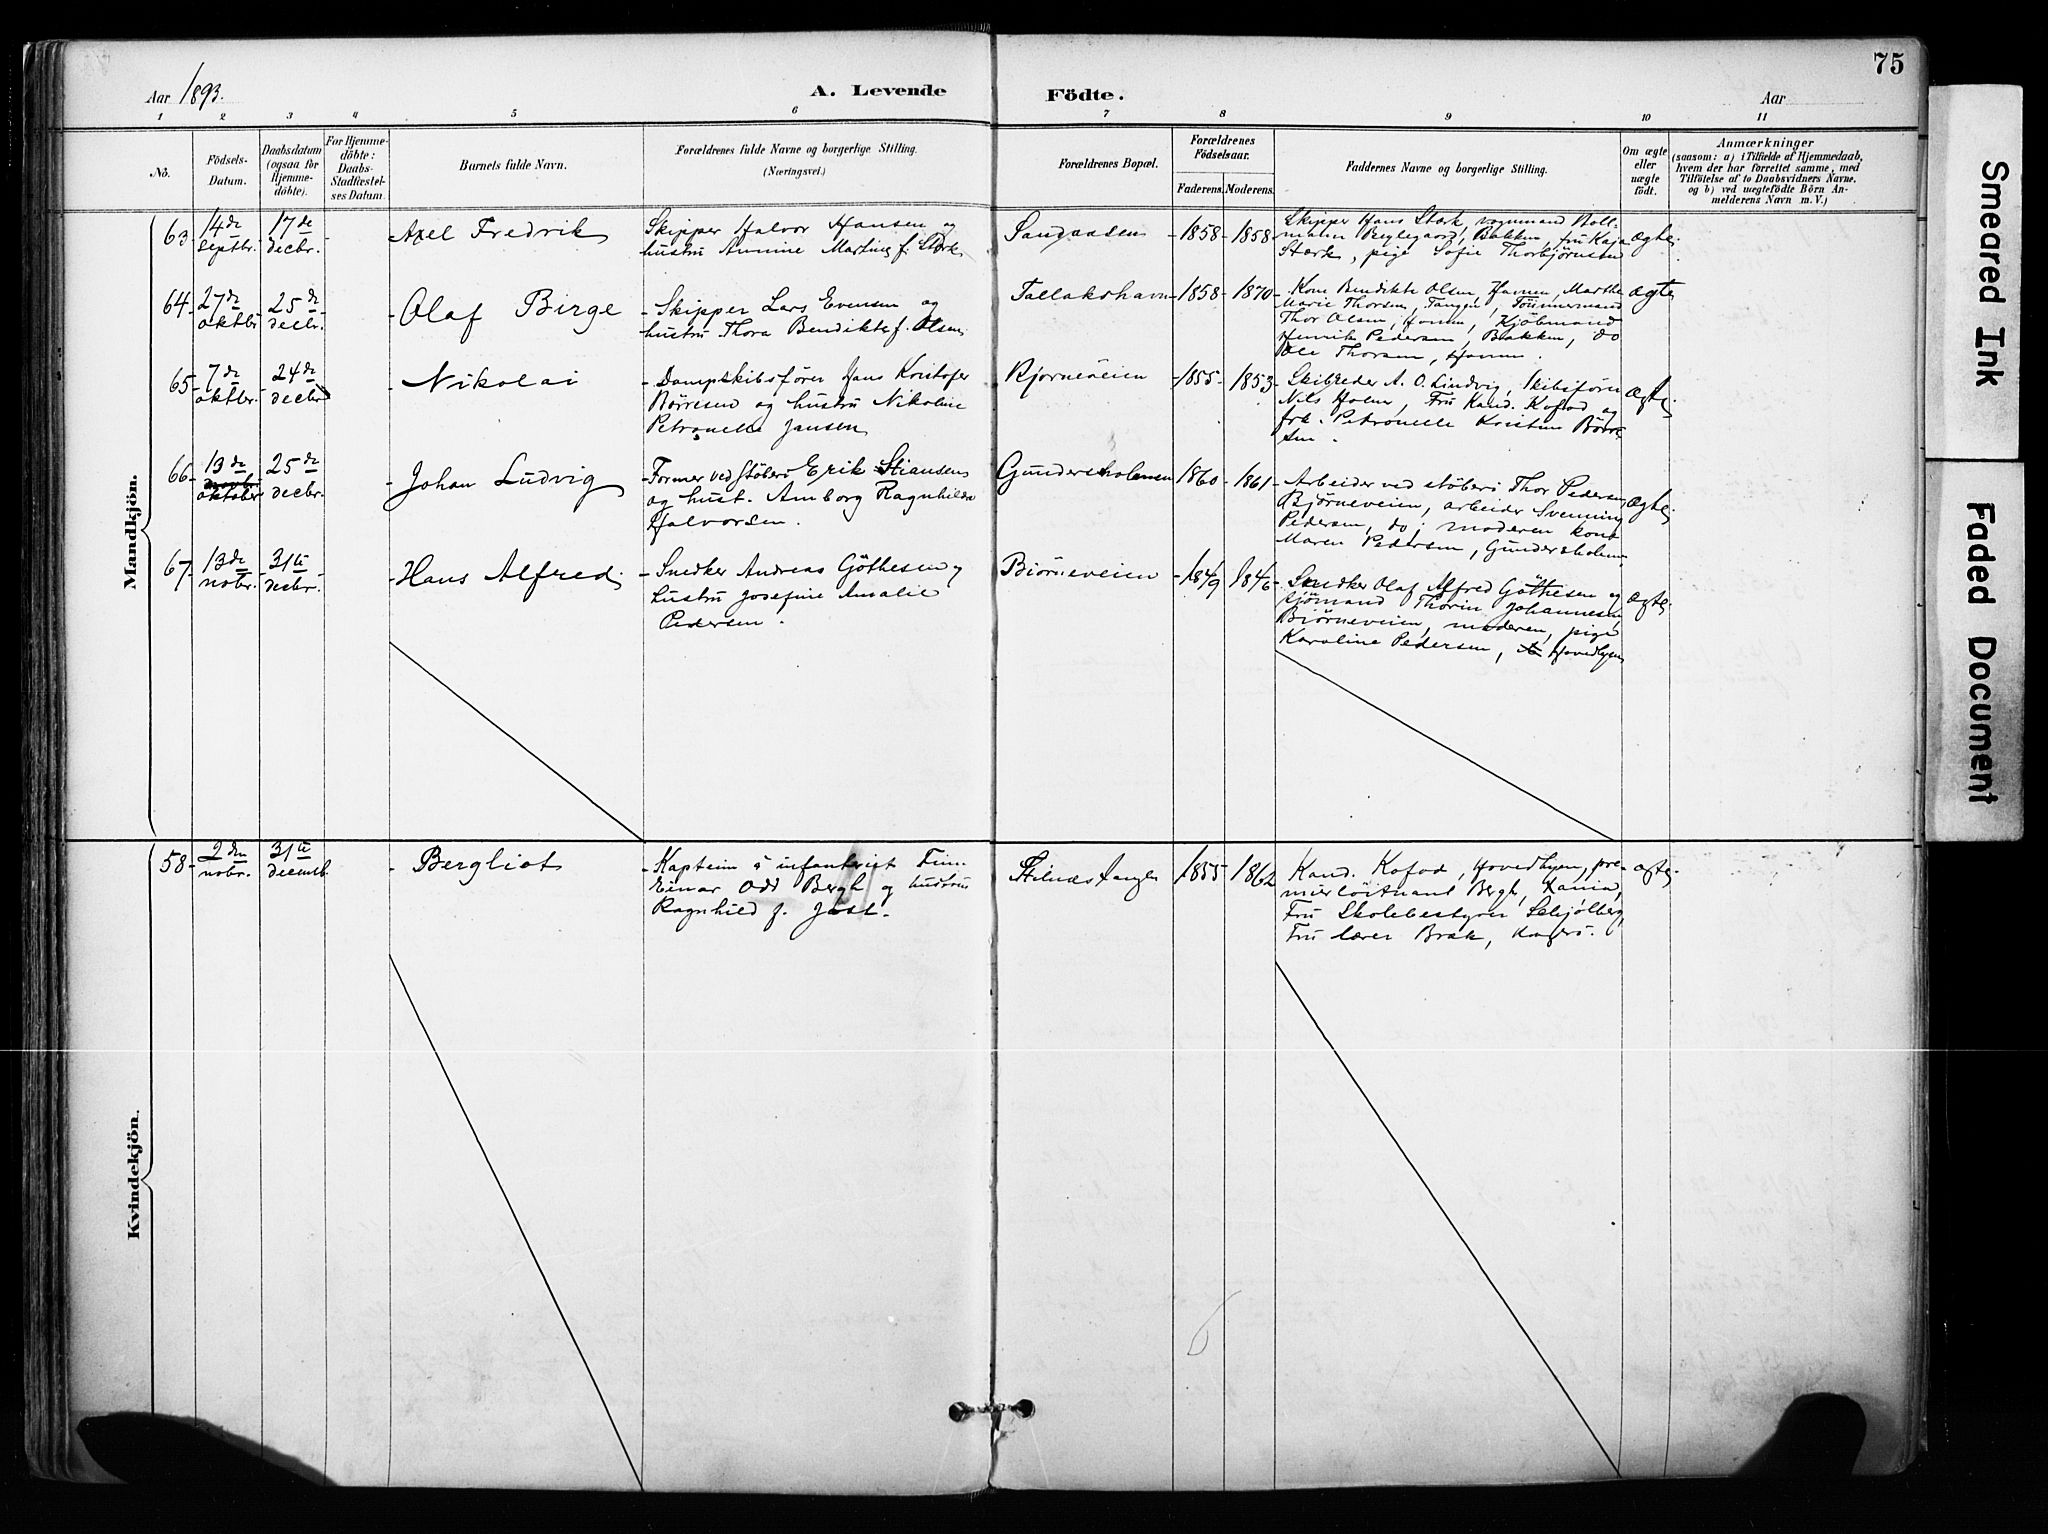 75
Aar 1893.
A. Levende Födte.
Aar
1 2 3 4 5 6 7 8 9 10 11
No.
Födsels-
Datum.
Daabsdatum
(ogsaa for
Hjemme-
döbte).
For Hjemme-
döbte:
Daabs-
Stadfæstel-
ses Datum.
Barnets fulde Navn.
Forældrenes fulde Navne og borgerlige Stilling.
(Næringsvei.)
Forældrenes Bopæl.
Forældrenes
Födselsaar.
Faderens. Moderens.
Faddernes Navne og borgerlige Stilling.
Om ægte
eller
uægte
födt.
Anmærkninger
(saasom: a) i Tilfælde af Hjemmedaab,
hvem der har forrettet samme, med
Tilföielse af to Daabsvidners Navne,
og b) ved uægtefödte Börn An-
melderens Navn m. V.)
Mandkjön.
63
14de
septbr.
17de
decbr.
Axel Fredrik
Skipper Halvor Hansen og
hustru Annine Martine f. Stærk
Sandaasen
1858 1858
Skipper Hans Stærk, vognmand
Bakken, fru Kaja
Stærk, pige Sofie Thorbjørnsen
ægte
64
27de
oktbr
25de
decbr.
Olaf Birge
Skipper Lars Evensen og
hustru Thora Bendikte f. Olsen
Tallakshavn
1858 1870
Kone Bendikte Olsen, Havnen, Marthe
Marie Thorsen, Tangen, Tömmermand
Thor Olsen, Havnen, Kjöbmand
Henrik Pedersen, Bakken, do
Ole Thorsen, Havnen.
ægte
65
7de
oktbr.
24de
decbr
Nikolai
Dampskibsförer Hans Kristofer
Börresen og hustru Nikoline
Petronelle Jansen
Bjørneveien
1855 1853
Skibsreder A. O. Lindvig, Skibsförer
Nils Holmer, Fru Kand. Kofod og
frk. Petronelle Kristine Börre-
sen.
ægte
66
13de
oktober
25de
decbr.
Johan Ludvig
Former ved Støberi Erik Stiansen
og hust. Amborg Ragnhilda
Halvorsen.
Gundersholmen
1860 1861
Arbeider ved støberi Thor Pedersen
Bjørneveien, arbeider Svenning
Pedersen, do, moderen, kone
Maren Pedersen, Gundersholmen
ægte
67
13de
nobr.
31te
desbr.
Hans Alfred
Snedker Andreas Göthesen og
hustru Josefine Amalie
Pedersen.
Biørneveien
1849 1846
Snedker Olaf Alfred Göthesen og
sjömand Thorin Johannesen,
Biørneveien, moderen, pige
Karoline Pedersen, Hovedbyen
ægte
Kvindekjön.
58
2den
nobr.
31te
decemb.
Bergliot
Kaptein i infanteriet Finn
Einar Odd Bergh og hustru
Ragnhild f. Juel.
Stilnestangen
1855 1862
Kand. Kofod, Hovedbyen, pre-
mierlöitnant Bergh, Xania,
Fru Skolebestyrer Schjølberg,
Fru lærer Bræk, Kragerø.
ægte
Smeared Ink
Faded Document